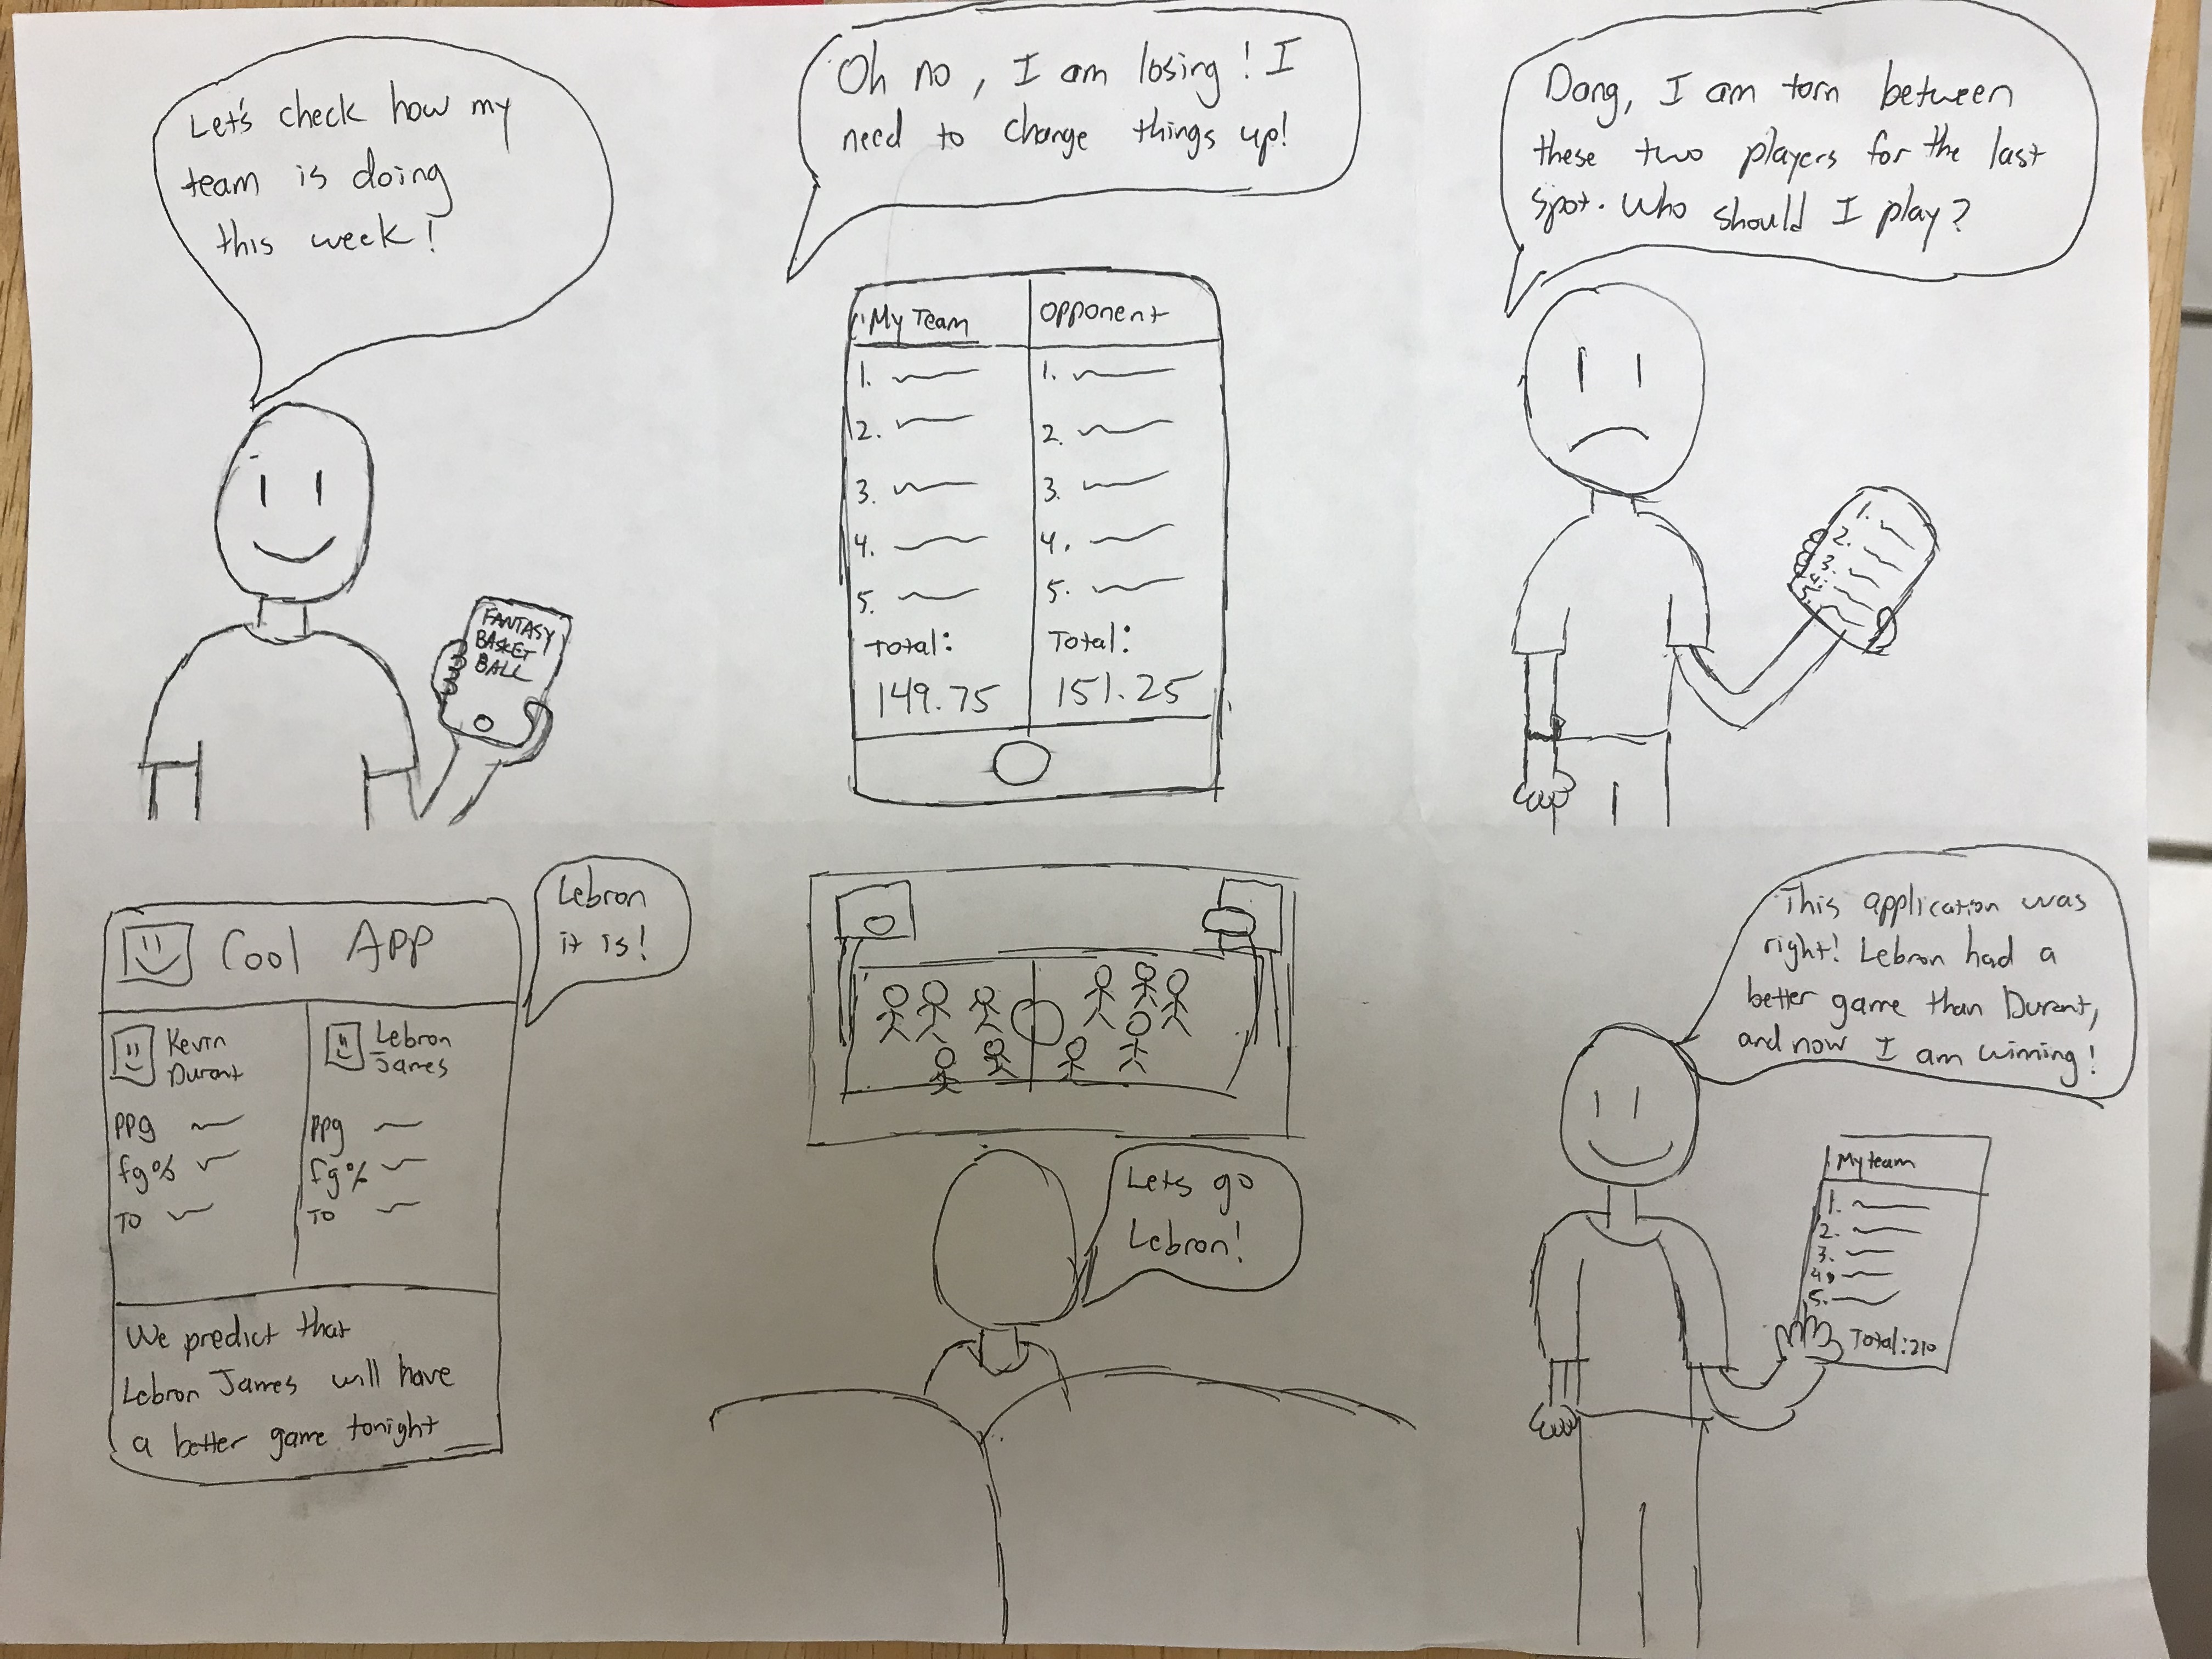 Let's check how my
team is doing
this week!
FANTASY
BASKET
BALL
Oh no, I am losing! I
need to change things up!
My Team
1.
2.
3.
4.
5.
Total:
149.75
Opponent
1.
2.
3.
4.
5.
Total:
151.25
Dang, I am torn between
these two players for the last
spot. Who should I play?
1.
2.
3.
4.
5.
Cool App
Kevin
Durant
PPg
fg%
TO
Lebron
James
PPg
fg%
TO
We predict that
Lebron James will have
a better game tonight
Lebron
it is!
Lets go
Lebron!
This application was
right! Lebron had a
better game than Durant,
and now I am winning!
My team
1.
2.
3.
4.
5.
Total:210